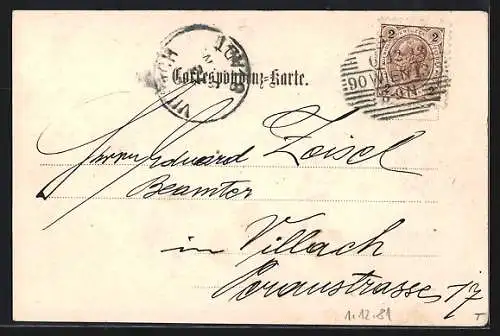 2 2
WIEN
Correspondenz-Karte.
VILLACH
Herrn Eduard Zoisel
Beamter
in Villach
17
1.12.81